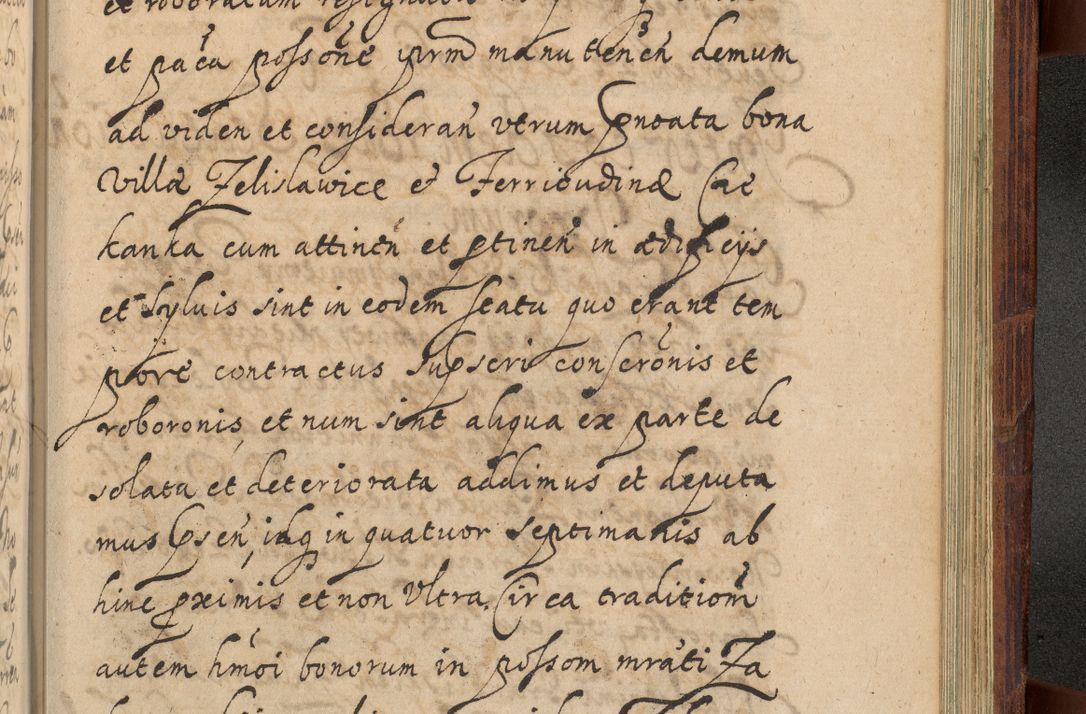 et roboratam
et paca possone prm manutenen demum
ad viden et consideran vtrum pnoata bona
Villæ Zelislawice et Ferricudinæ Cae
kanka cum attinen et ptinen in ædificijs
et sylvis sint in eodem statu quo erant tem
pore contractus supscri conscronis et
roboronis, et num sint aliqua ex parte de
solata et deteriorata addimus et deputa
mus psen, idq in quatuor septimanis ab
hinc pximis et non Vltra. Circa traditiom
autem hmoi bonorum in possom mrati Za